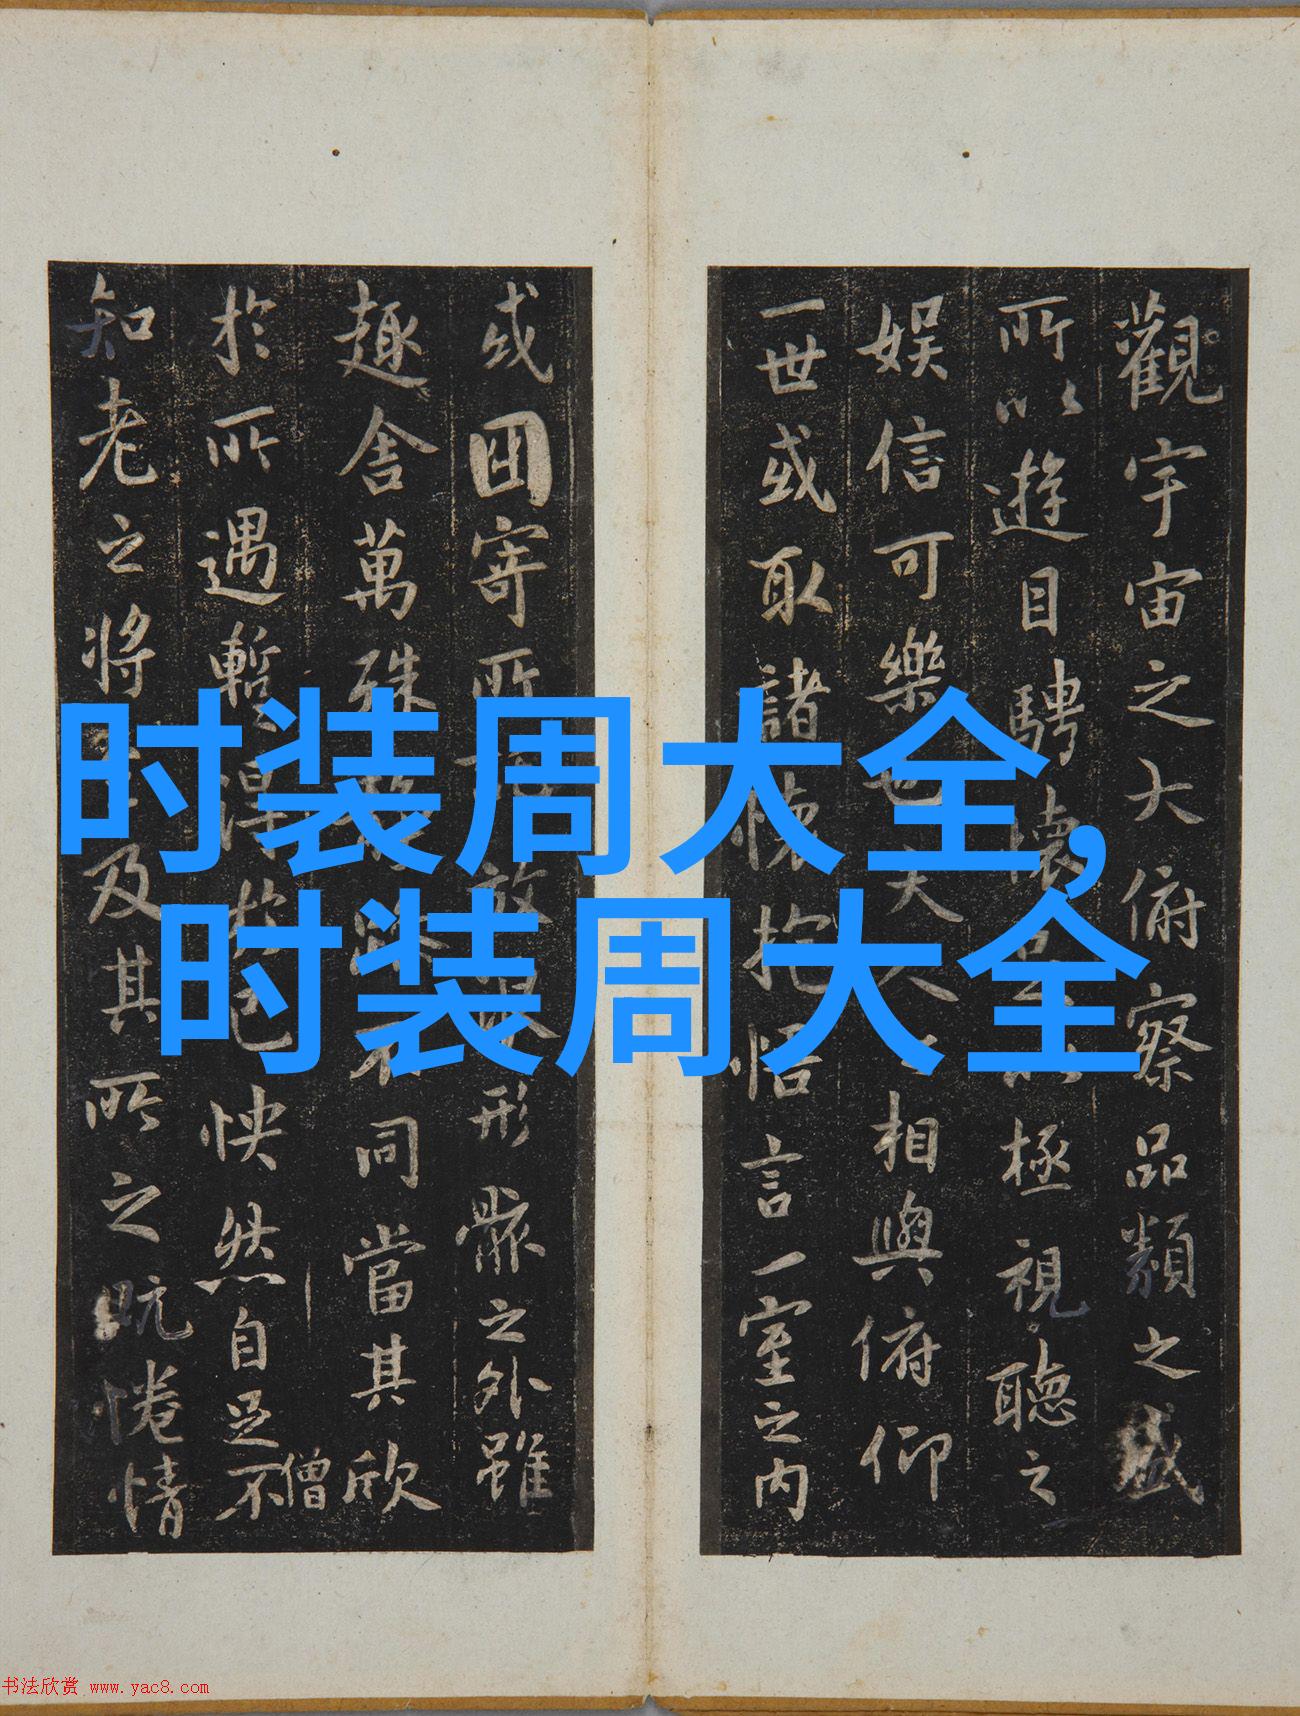 時装周大全,
时装周大全
觀宇宙之大俯察品類之盛
所以遊目騁懷極視聽之
娛信可樂也夫人相與俯仰
一世或取諸懷抱悟言一室之內
或因寄所放浪形骸之外雖
趣舍萬殊躁不同當其欣
於所遇暫得於己怏然自足不
僧
知老之將及其所之既惓情
书法欣赏 www.yac8.com